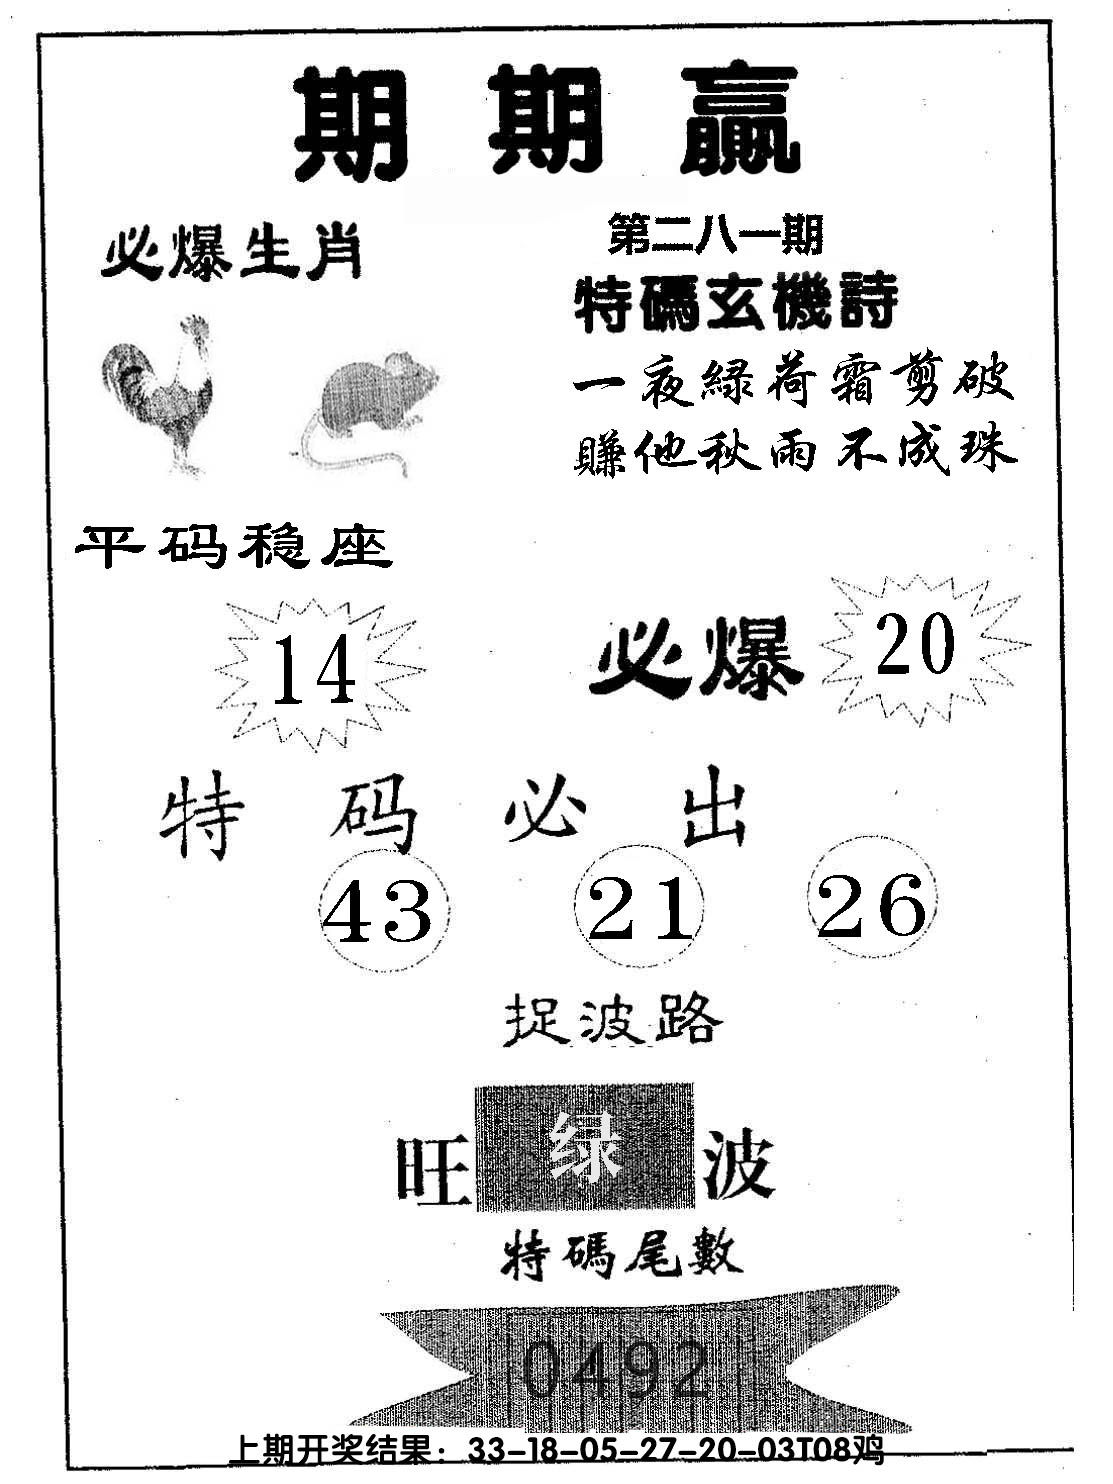 期期赢
第二八一期
必爆生肖
特碼玄機詩
一夜緑荷霜剪破
賺他秋雨不成珠
平码稳座
14
必爆
20
特码必出
43 21 26
捉波路
旺 绿 波
特碼尾數
0492
上期开奖结果：33-18-05-27-20-03T08鸡